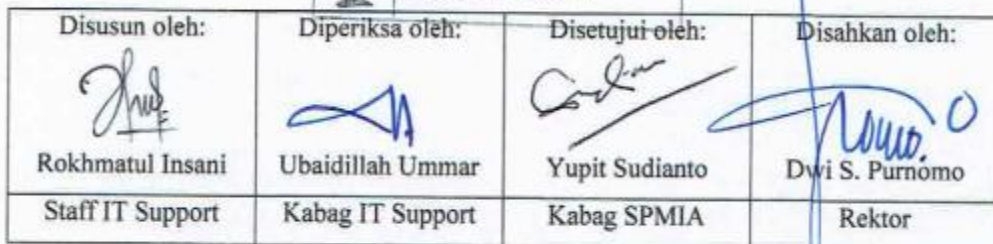 Disusun oleh: Diperiksa oleh: Disetujui oleh: Disahkan oleh:
Rokhmatul Insani Ubaidillah Ummar Yupit Sudianto Dwi S. Purnomo
Staff IT Support Kabag IT Support Kabag SPMIA Rektor